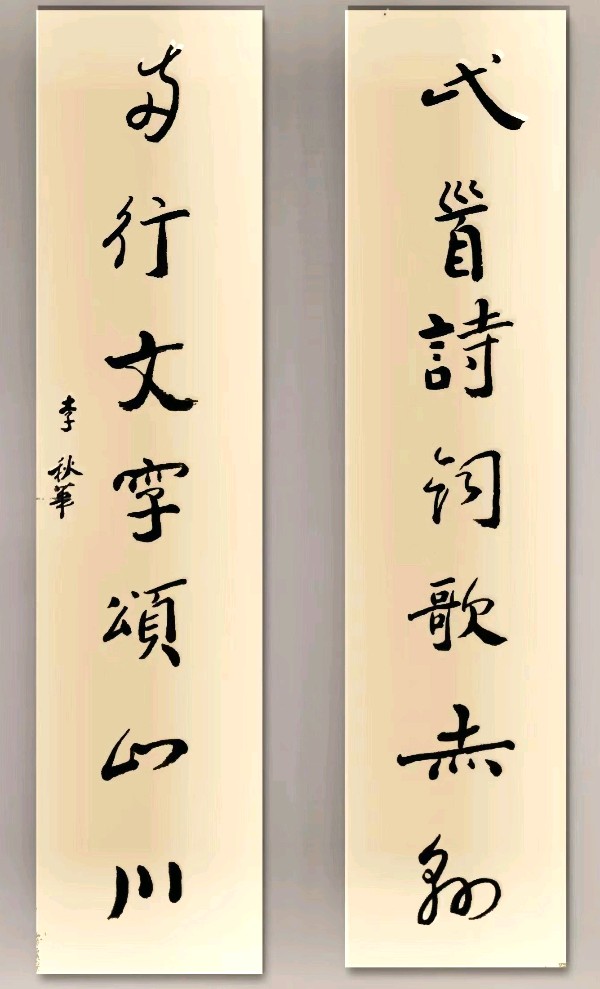 首詩詞歌赤縣
兩行文字頌山川
李秋華